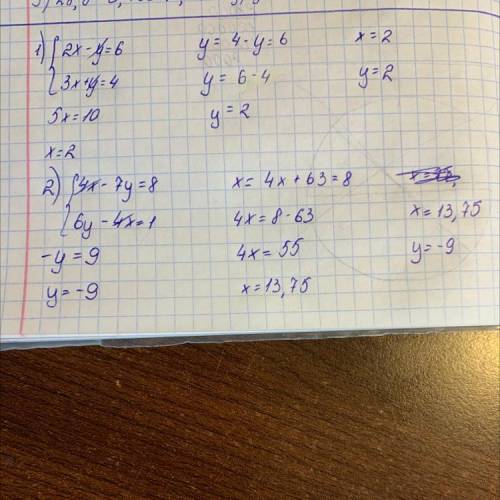 1) { 2x - y = 6
3x + y = 4
5x = 10
x = 2
y = 4 - y = 6
y = 6 - 4
y = 2
x = 2
y = 2
2) { 4x - 7y = 8
6y - 4x = 1
-y = 9
y = -9
x = 4x + 63 = 8
4x = 8 - 63
4x = 55
x = 13,75
x = 13,75
y = -9